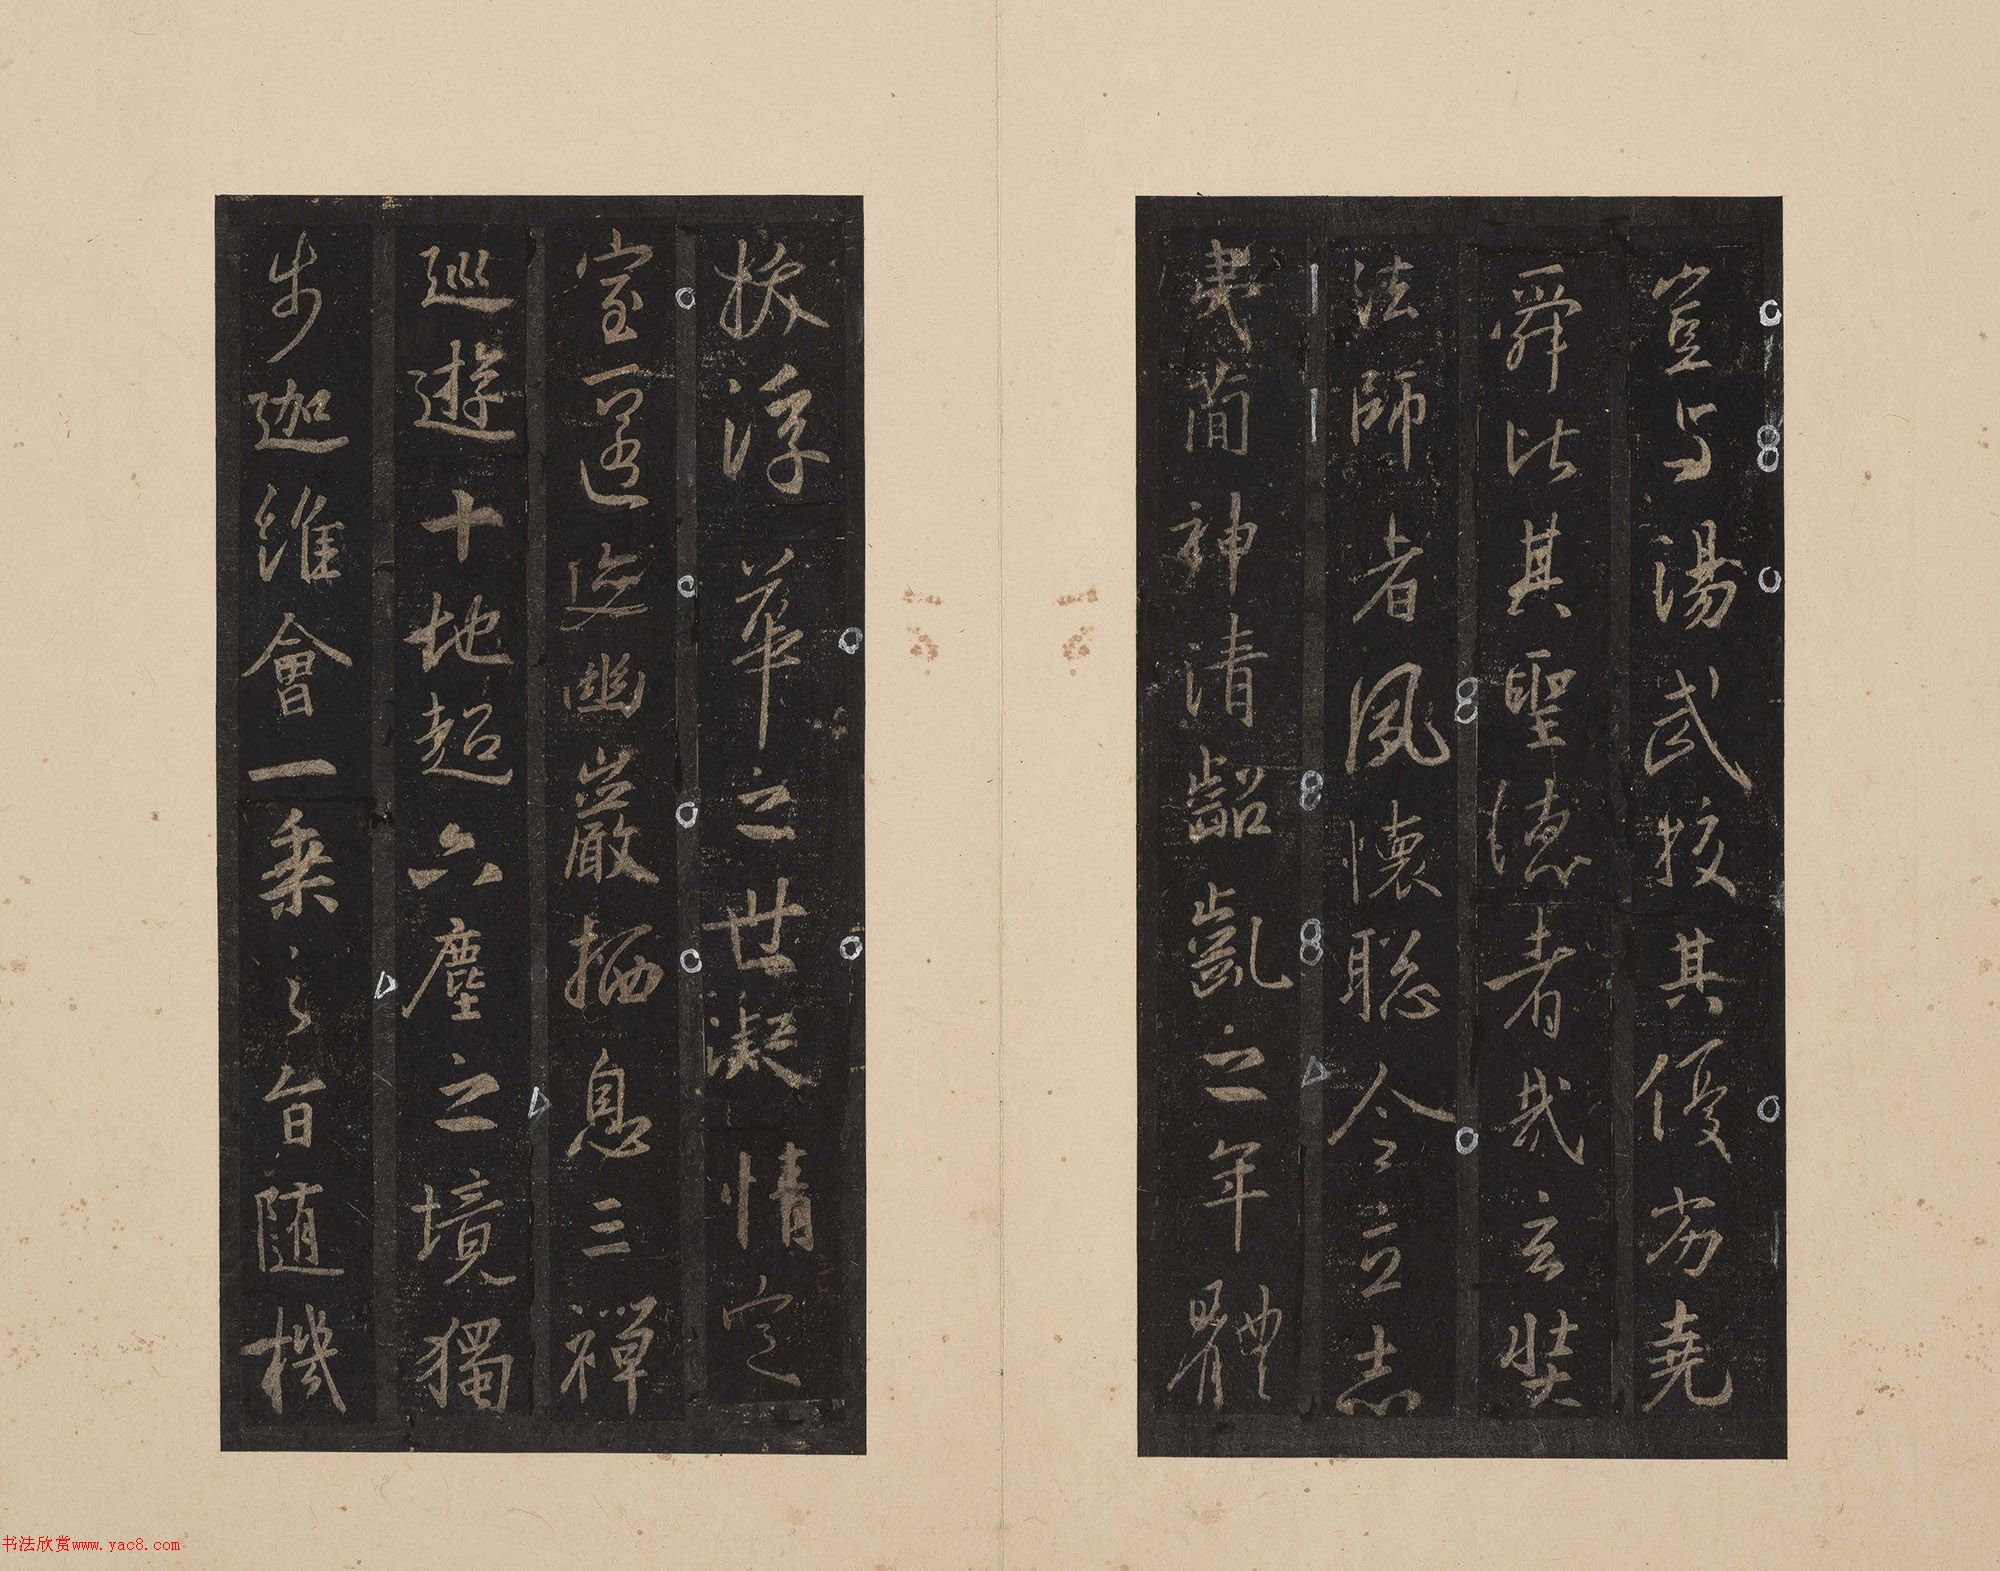 豈与湯武挍其優劣堯
舜比其聖德者哉玄奘
法師者夙懷聡令立志
夷蕳神清齠齔之年體
拔浮華之世凝情定
室匿迹幽巖栖息三禪
巡遊十地超六塵之境獨
步迦維會一乗之旨随機
书法欣赏www.yac8.com